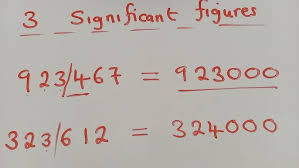 3 Significant figures
923/467 = 923000
323/612 = 324000